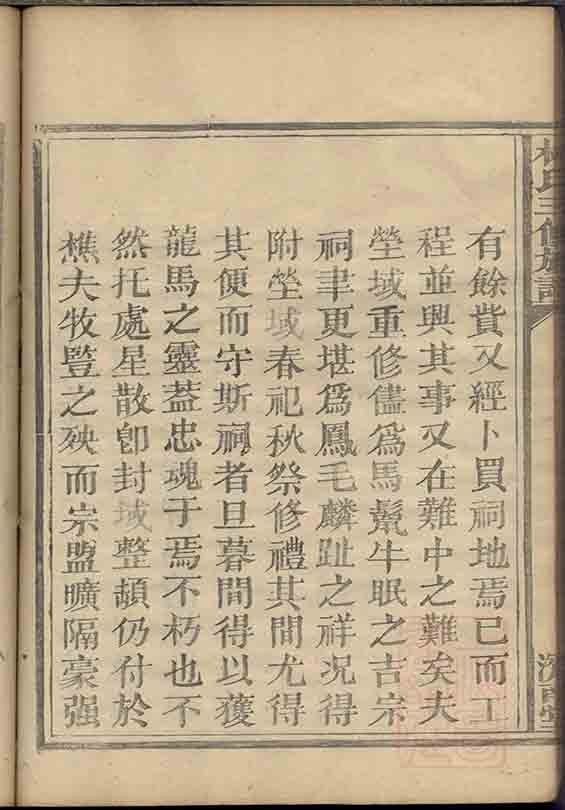 氏三修族譜
有餘貲又經卜買祠地焉已而工
程並興其事又在難中之難矣夫
塋域重修儘爲馬鬣牛眠之吉宗
祠聿更堪爲鳳毛麟趾之祥况得
附塋域春祀秋祭修禮其間尤得
其便而守斯祠者旦暮間得以獲
龍馬之靈葢忠魂于焉不朽也不
然托處星散卽封域整頓仍付於
樵夫牧豎之殃而宗盟曠隔豪强